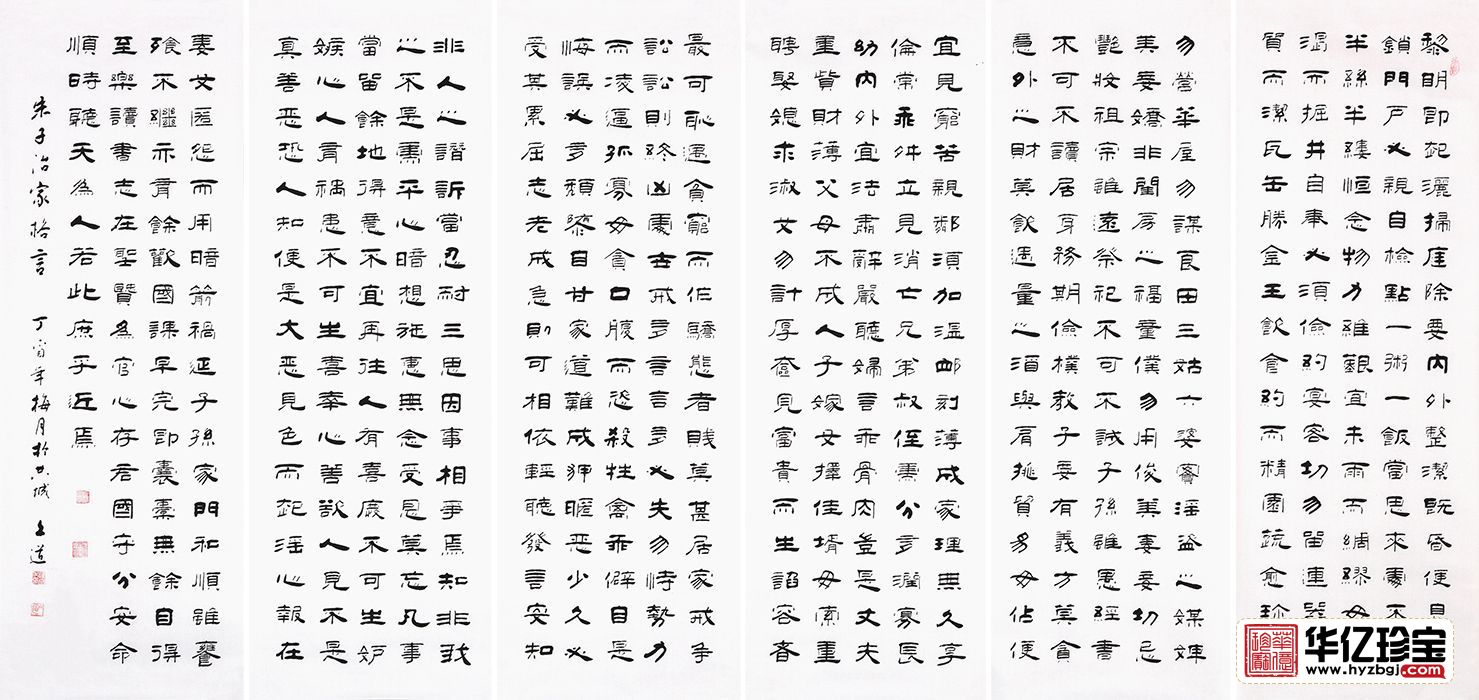 黎明即起灑掃庭除要內外整潔既昏便息
鎖門戶必親自檢點一粥一飯當思來處不
半絲半縷恒念物力維艱宜未雨而綢繆毋
渴而掘井自奉必須儉約宴客切勿留連器
質而潔瓦缶勝金玉飲食約而精園蔬愈珍
勿營華屋勿謀良田三姑六婆實淫盜之媒婢
美妾嬌非閨房之福童僕勿用俊美妻妾切忌
艷妝祖宗雖遠祭祀不可不誠子孫雖愚經書
不可不讀居身務期儉樸教子要有義方莫貪
意外之財莫飲過量之酒與肩挑貿易毋佔便
宜見窮苦親鄰須加溫卹刻薄成家理無久享
倫常乖舛立見消亡兄弟叔侄需分多潤寡長
幼內外宜法肅辭嚴聽婦言乖骨肉豈是丈夫
重貲財薄父母不成人子嫁女擇佳壻毋索重
聘娶媳求淑女勿計厚奩見富貴而生諂容者
最可恥遇貧窮而作驕態者賤莫甚居家戒爭
訟訟則終凶處世戒多言言多必失勿恃勢力
而凌逼孤寡毋貪口腹而恣殺牲禽乖僻自是
悔誤必多頹墮自甘家道難成狎暱惡少久必
受其累屈志老成急則可相依輕聽發言安知
非人之譖訴當忍耐三思因事相爭焉知非我
之不是需平心暗想施惠無念受恩莫忘凡事
當留餘地得意不宜再往人有喜慶不可生妒
嫉心人有禍患不可生喜幸心善欲人見不是
真善惡恐人知便是大惡見色而起淫心報在
妻女匿怨而用暗箭禍延子孫家門和順雖饔
飧不繼亦有餘歡國課早完即囊橐無餘自得
至樂讀書志在聖賢為官心存君國守分安命
順時聽天為人若此庶乎近焉
朱子治家格言 丁酉年梅月於
华亿珍宝
www.hyzbgj.com